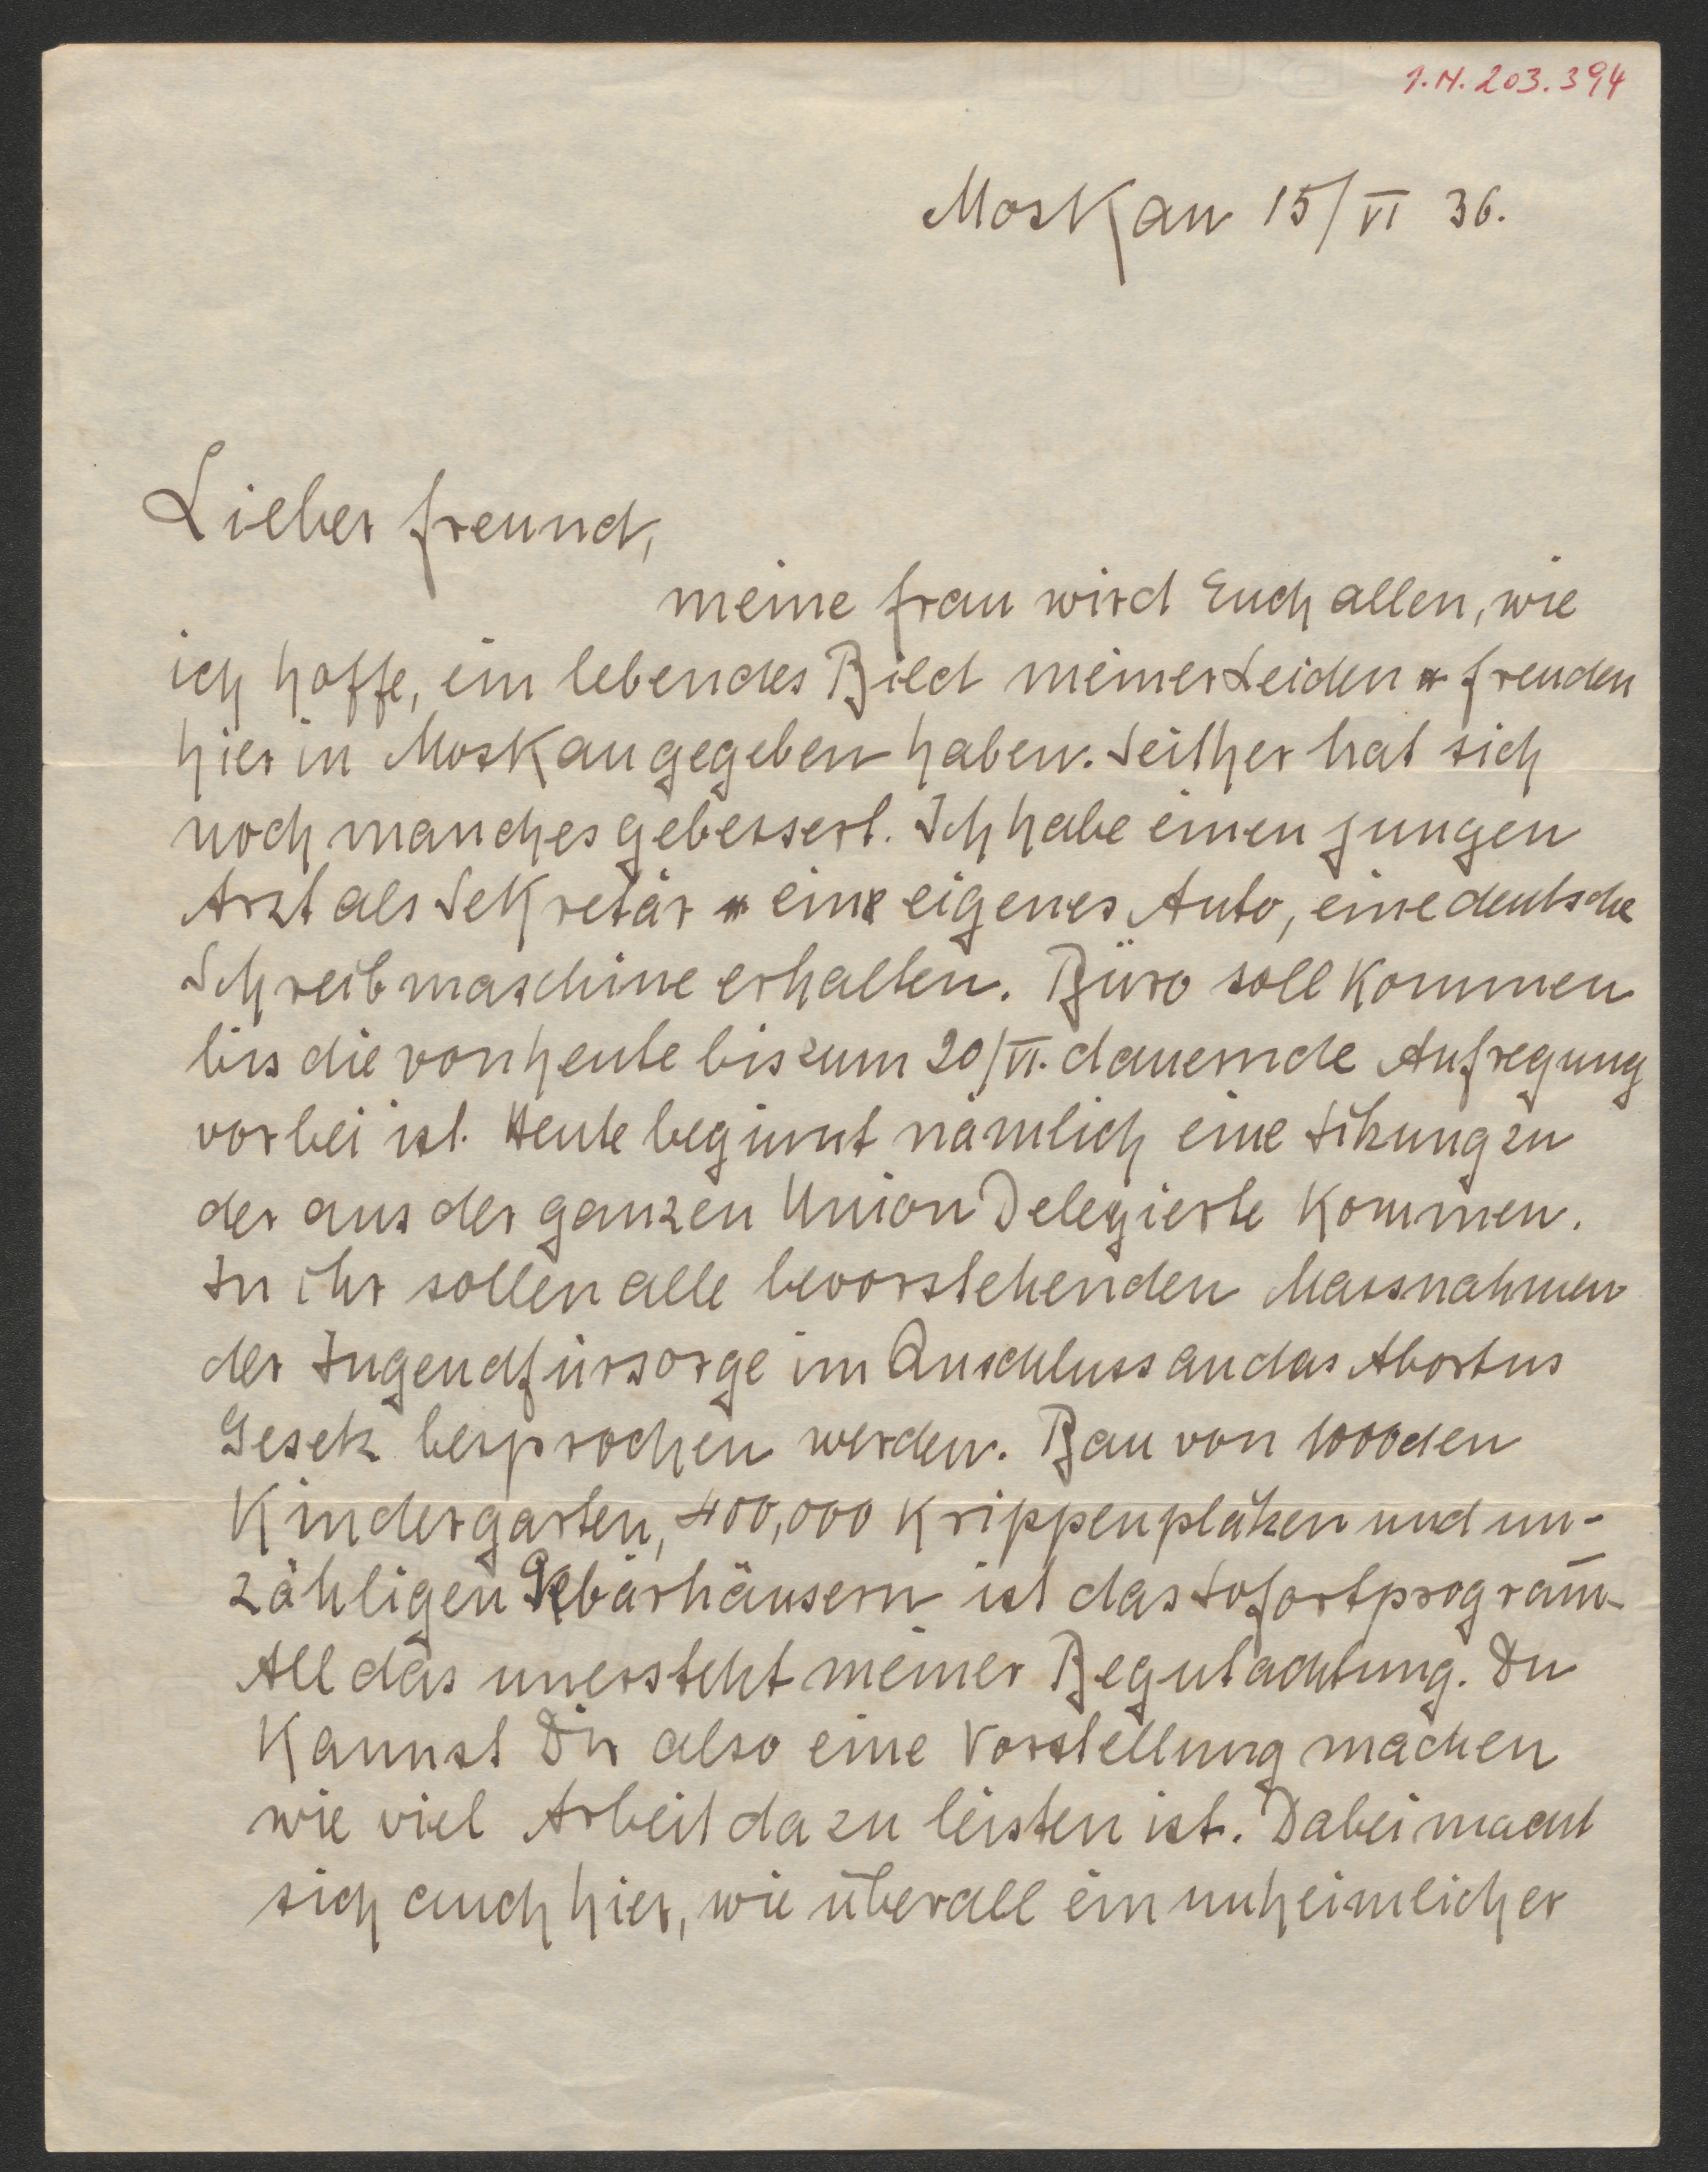 I.N. 203.394
Moskau 15/VI 36.
Lieber Freund,
meine Frau wird Euch allen, wie
ich hoffe, ein lebendes Bild meiner Leiden u Freuden
hier in Moskau gegeben haben. Seither hat sich
noch manches gebessert. Ich habe einen jungen
Arzt als Sekretär u ein eigenes Auto, eine deutsche
Schreibmaschine erhalten. Büro soll kommen
bis die von heute bis zum 20/VI. dauernde Aufregung
vorbei ist. Heute beginnt nämlich eine Sitzung zu
der aus der ganzen Union Delegierte kommen.
In ihr sollen alle bevorstehenden Massnahmen
der Jugendfürsorge im Anschluss an das Abortus
Gesetz besprochen werden. Bau von 1000den
Kindergarten, 400,000 Krippenplätzen und un-
zähligen Gebärhäusern ist das Sofortprogram̅.
All das unersteht meiner Begutachtung. Du
kannst Dir also eine Vorstellung machen
wie viel Arbeit da zu leisten ist. Dabei macht
sich auch hier, wie überall ein unheimlicher